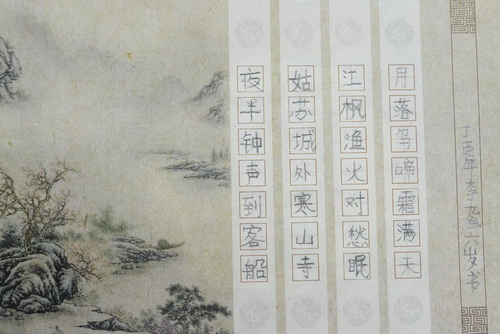 月落乌啼霜满天
江枫渔火对愁眠
姑苏城外寒山寺
夜半钟声到客船
丁酉年 李 六岁书